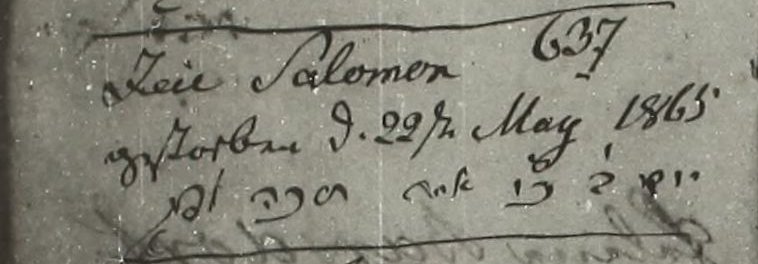 Salomon 637
gestorben d. 22 May 1865
יום ב' כו אייר תרכה לפק